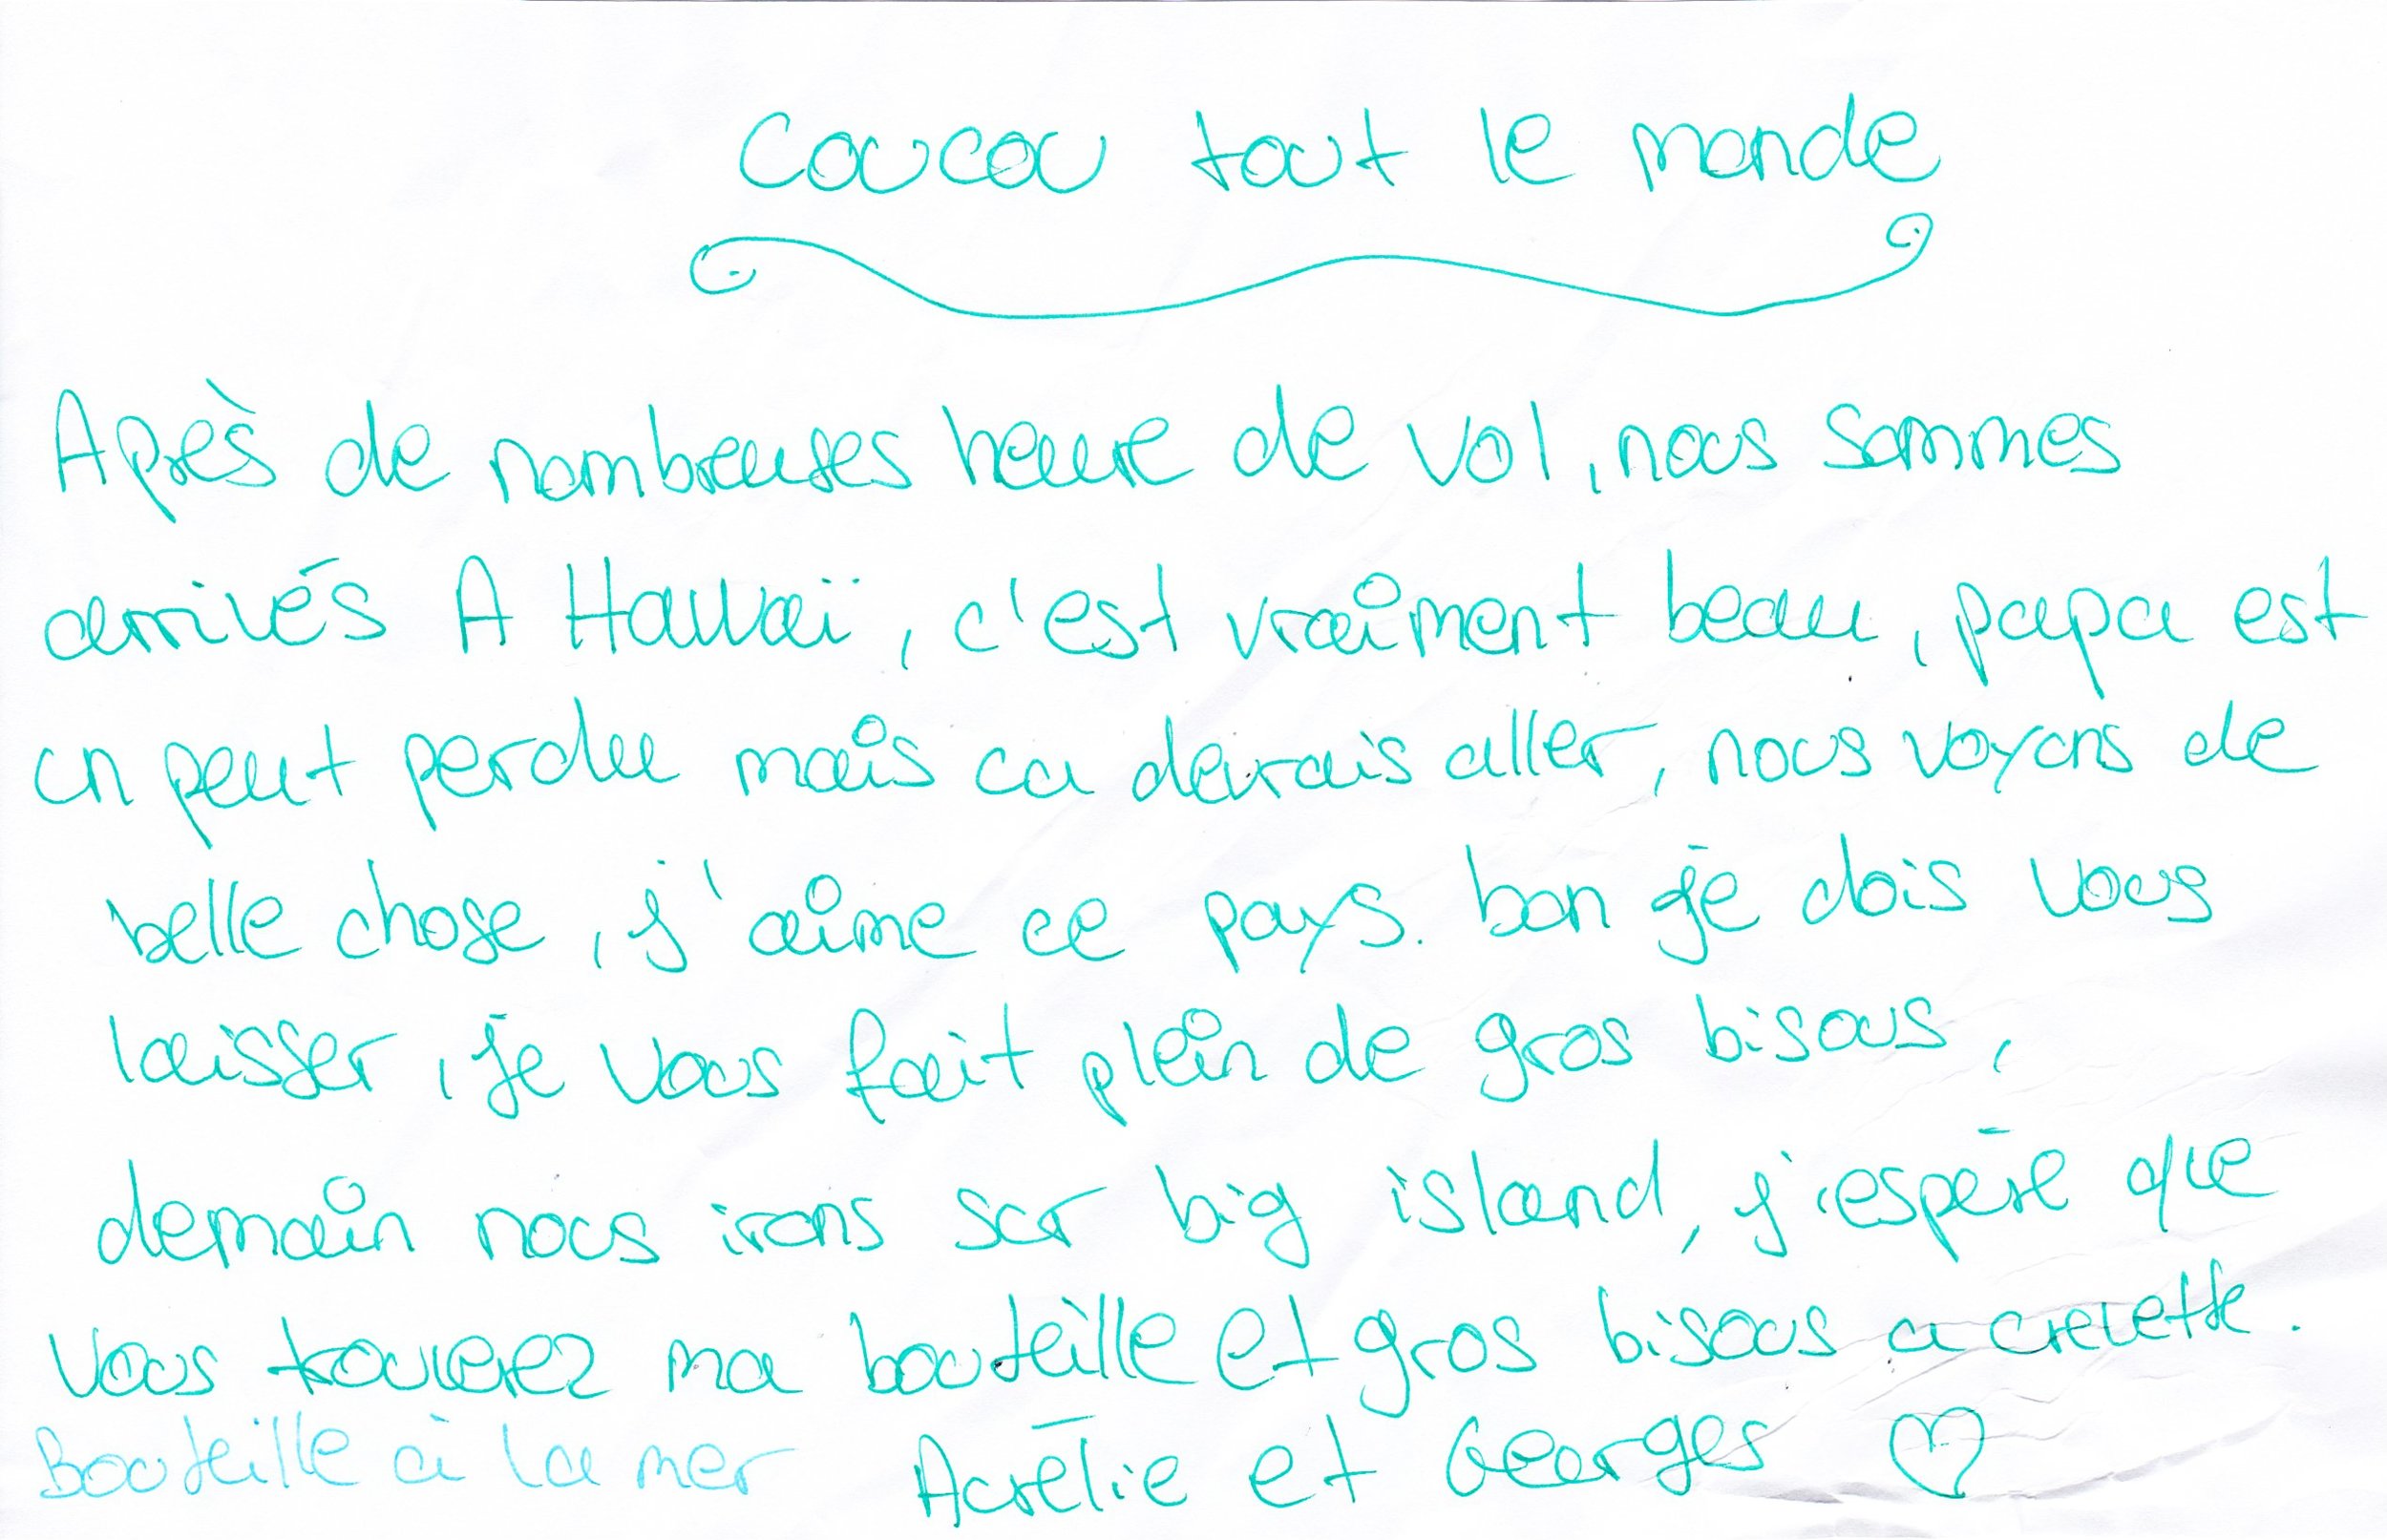 Coucou tout le monde
Après de nombreuses heure de vol, nous sommes
arrivés A Hawaï, c'est vraiment beau, papa est
un peut perdu mais ca devrais aller, nous voyons de
belle chose, j'aime ce pays. bon je dois vous
laisser, je vous fait plein de gros bisous,
demain nous irons sur big island, j'espére que
vous trouverez ma bouteille et gros bisous a crevette.
Bouteille à la mer Aurélie et Georges